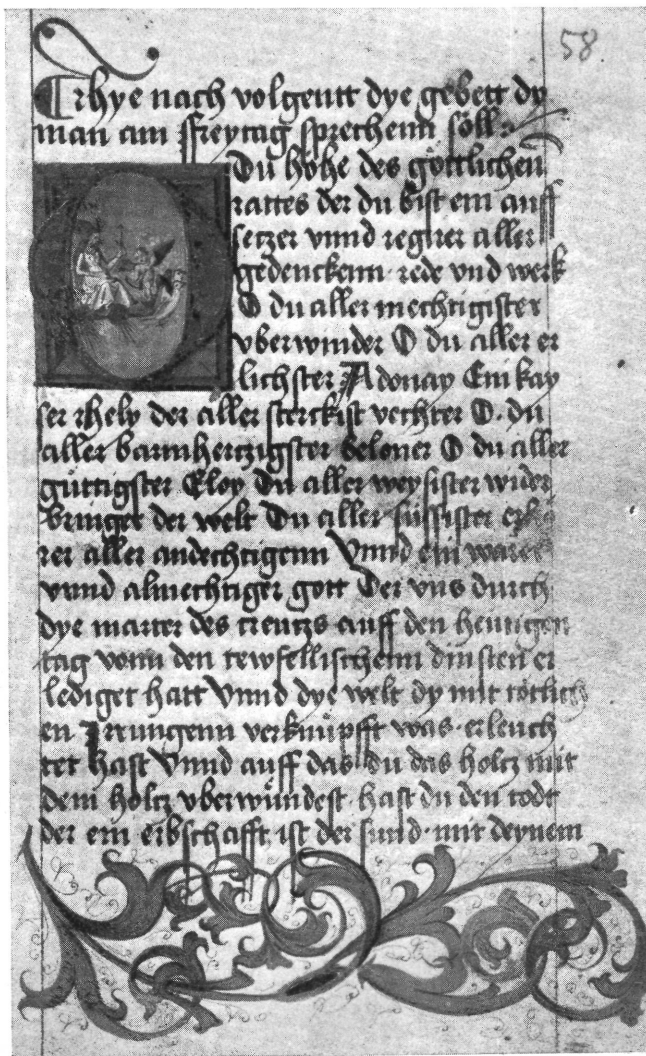 58
Hye nach volgentt dye gebett dy
man am freytag sprechenn soll
O Du hohe des gottlichen
rattes der du bist ein auff
setzer vnnd regirer aller
gedenckenn rede vnd werk
O du aller mechtigister
vberwinder O du aller er
lichster Adonay Ein kay
ser der aller sterckist vechter O du
aller barmhertzigster beloner O du aller
guttigster Eloy Du aller weysister wider
bringer der welt Du aller sussister
rer aller andechtigenn Vnnd ein
vnnd almechtiger gott Der vns durch
dye marter des creutzs auff den heutigen
tag vonn den tewfellischenn dinsten er
lediget hatt Vnnd dye welt dy mit totlich
en Irrungenn verknüpfft was erleuch
tet hast Vnnd auff das du das holtz mit
dem holtz vberwündest hast du den todt
der ein erbschafft ist der sund mit deynem